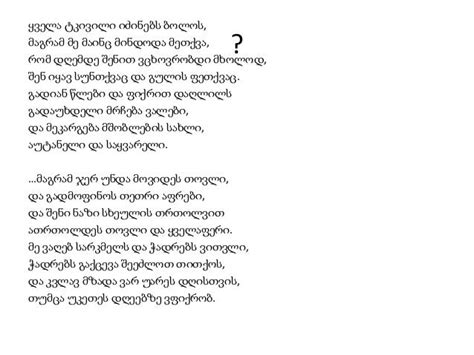 ყველა ტკივილი იძინებს ბოლოს,
მაგრამ მე მაინც მინდოდა მეთქვა,
?
რომ დღემდე შენით ვცხოვრობდი მხოლოდ,
შენ იყავ სუნთქვაც და გულის ფეთქვაც.
გადიან წლები და ფიქრით დაღლილს
გადაუხდელი მრჩება ვალები,
და მეკარგება მშობლების სახლი,
აუტანელი და საყვარელი.
...მაგრამ ჯერ უნდა მოვიდეს თოვლი,
და გადმოფინოს თეთრი აფრები,
და შენი ნაზი სხეულის თრთოლვით
ათრთოლდეს თოვლი და ყველაფერი.
მე ვაღებ სარკმელს და ჭადრებს ვითვლი,
ჭადრებს გაქცევა შეეძლოთ თითქოს,
და კვლავ მზადა ვარ უარეს დღისთვის,
თუმცა უკეთეს დღეებზე ვფიქრობ.